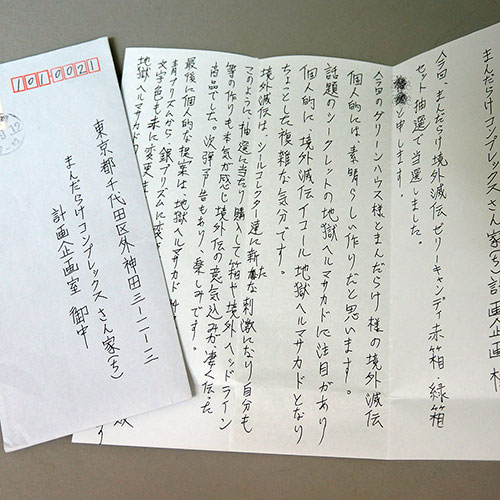 1010021
東京都千代田区外神田三ー一一ー一二
まんだらけコンプレックス さん家(ち)
計画企画室 御中
まんだらけコンプレックスさん家(ち)計画企画
今回、まんだらけ境外滅伝ゼリーキャンディ赤箱 緑箱
セット抽選で当選しました。
と申します。
今回のグリーンハウス様とまんだらけ様の境外滅伝
個人的には素晴らしい作りだと思います。
話題のシークレットの地獄ヘルマサカドに注目があり
個人的に境外滅伝イコール地獄ヘルマサカドとなり
ちょことした複雑な気分です。
境外滅伝は、シールコレクター達に新たな刺激になり自分も
このように抽選に当たり購入して箱や境外ヘッドライン
等の作りも本気が感じ境外伝の意気込みが凄く伝った
商品でした。次弾予告もあり、楽しみです。
最後に個人的な提案は、地獄ヘルマサカド
青プリズムから銀プリズムに変
文字色も赤に変更ま
地獄ヘルマサカド